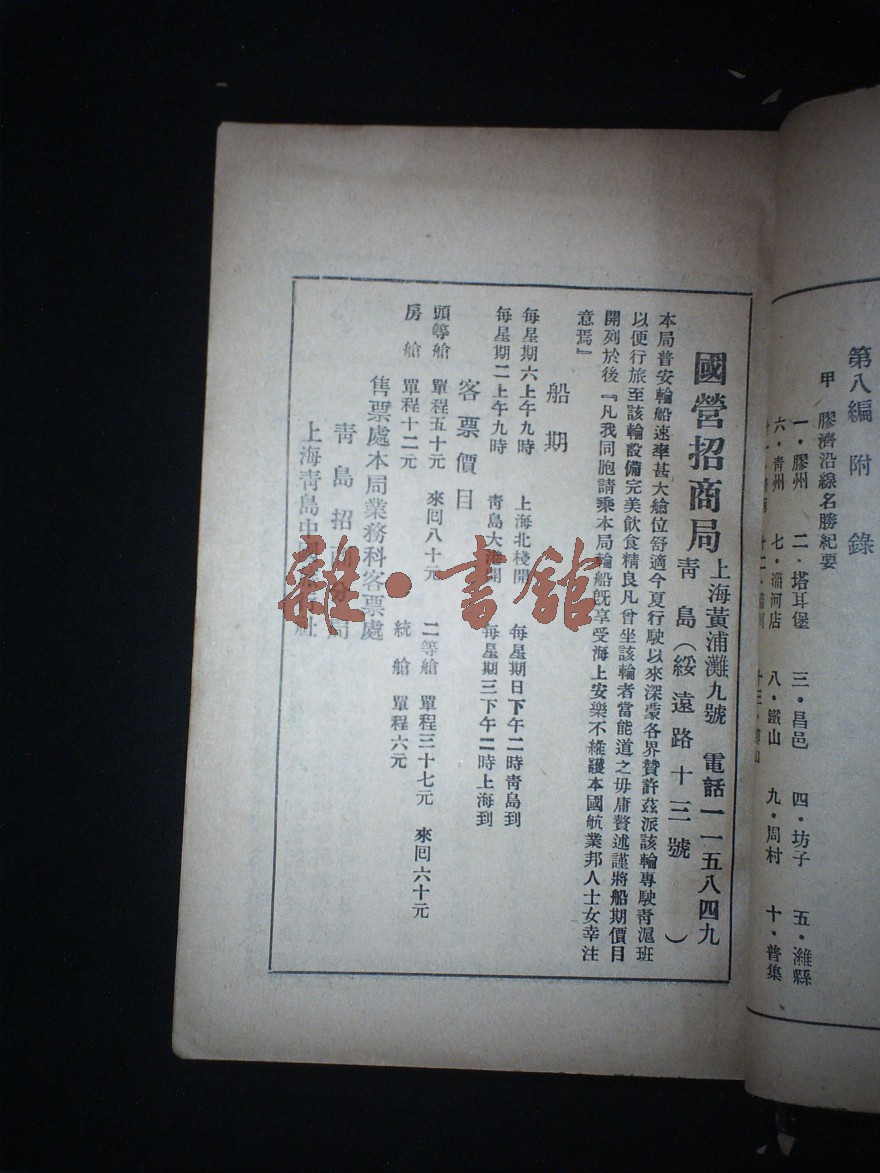 第八編 附 錄
甲 膠濟沿線名勝紀要
一·膠州 二·塔耳堡 三·昌邑 四·坊子 五·濰縣
六·青州 七·淄河店 八·鐵山 九·周村 十·普集
國營招商局
上海黃浦灘九號 電話一一五八四九
青島(綏遠路十三號)
本局普安輪船速率甚大艙位舒適今夏行駛以來深蒙各界贊許茲派該輪專駛青滬班
以便行旅至該輪設備完美飲食精良凡曾坐該輪者當能道之毋庸贅述謹將船期價目
開列於後『凡我同胞請乘本局輪船旣享受海上安樂不維護本國航業邦人士女幸注
意焉』
船期
每星期六上午九時 上海北棧開 每星期日下午二時青島到
每星期二上午九時 青島大港開 每星期三下午二時上海到
客票價目
頭等艙 單程五十元 來回八十元 二等艙 單程三十七元 來回六十元
房艙 單程十二元 統艙 單程六元
售票處本局業務科客票處
青島招商分局
上海青島中國社
雜·書館